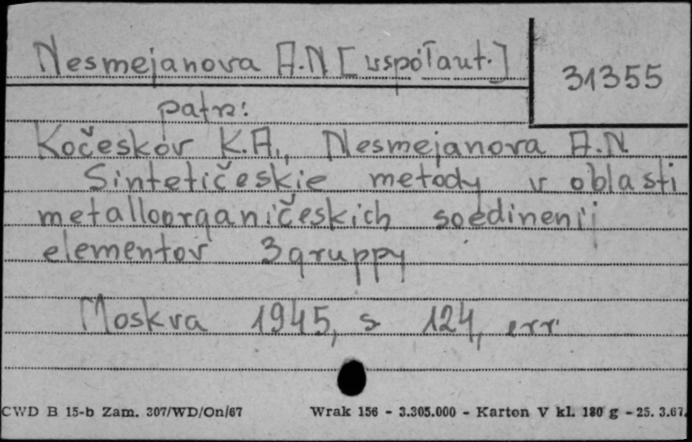 Nesmejanova A.N [współaut.]
31355
patrz:
Kočeskov K.A., Nesmejanova A.N.
Sintetičeskie metody v oblasti
metalloorganičeskich soedinenij
elementov 3 gruppy
Moskva 1945, s 124, err.
CWD B 15-b Zam. 307/WD/On/67 Wrak 156 - 3.305.000 - Karton V kl. 180 g - 25. 3.67.